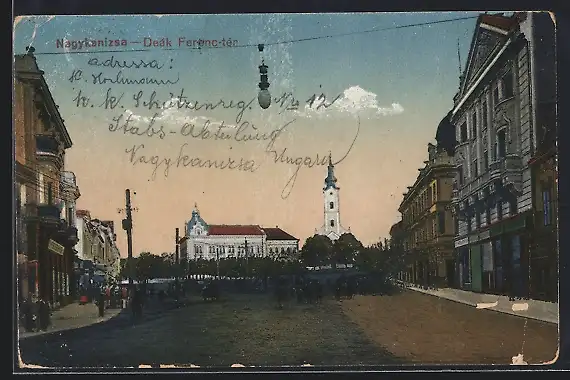 Nagykanizsa – Deák Ferenc-tér.
adressa:
K. Hochmann
k. k. Schützenreg. No 12
Stabs-Abteilung
Nagykanizsa Ungarn